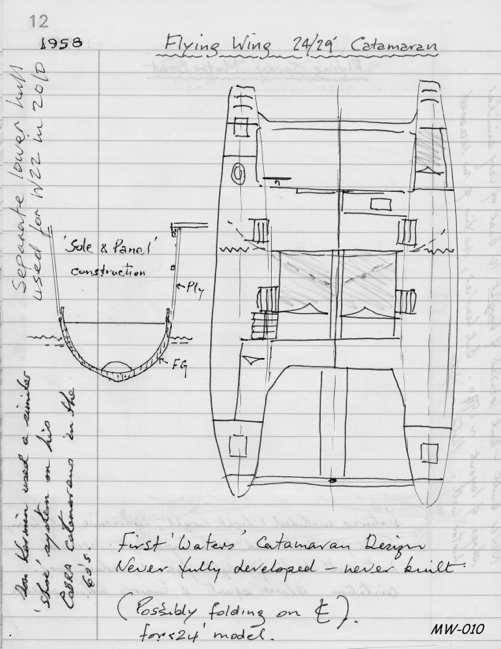 12
1958
Flying Wing 24/29' Catamaran
Separate lower hull
used for W22 in 2010
'Sole & Panel'
construction
Ply
FG
Ian Kermin used a similar
'shoe' system on his
COBRA catamarans in the
60's.
First 'Waters' Catamaran Design
Never fully developed – never built
(Possibly folding on ℄).
for <24' model.
MW-010